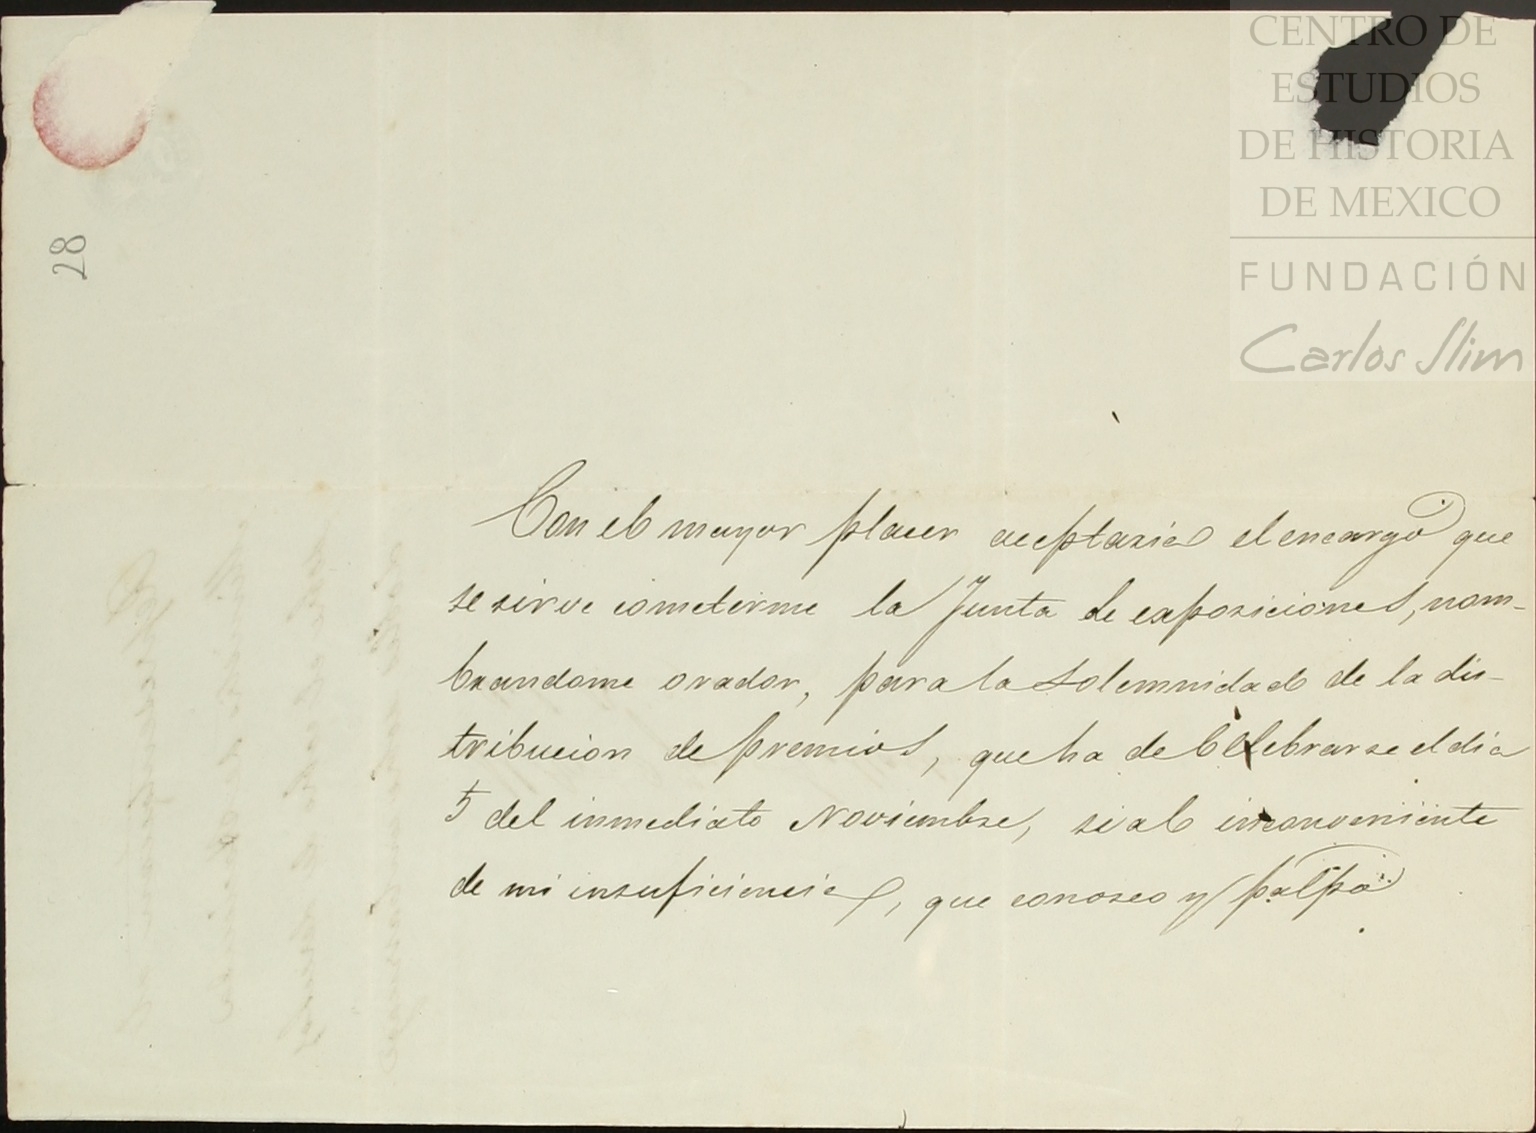 CENTRO DE
ESTUDIOS
DE HISTORIA
DE MEXICO
FUNDACIÓN
Carlos Slim
28
Con el mayor placer aceptaria el encargo que
se sirve cometerme la Junta de exposiciones, nom-
brandome orador, para la solemnidad de la dis-
tribucion de premios, que ha de Celebrarse el dia
5 del inmediato Noviembre, si al inconveniente
de mi insuficiencia, que conosco y palpo